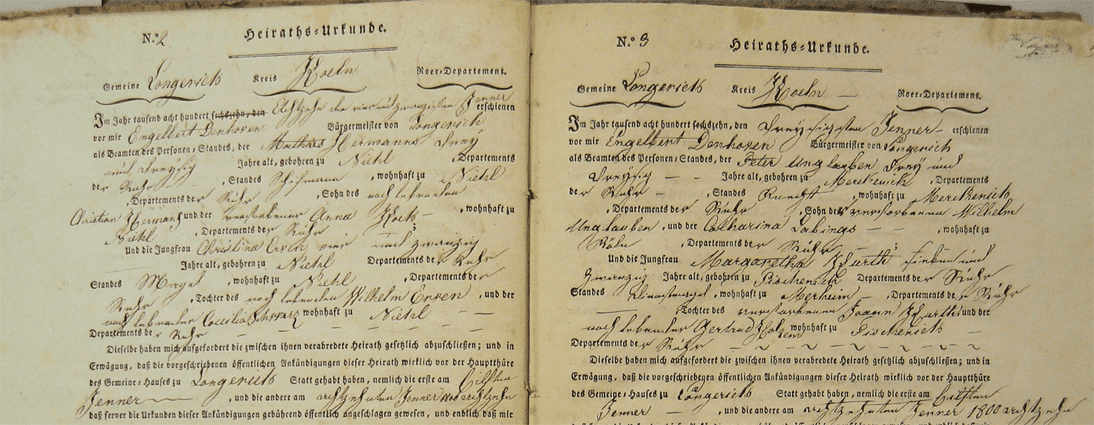 N.º 2
Heiraths-Urkunde.
Gemeine Longerich Kreis Koeln Roer-Departement.
Im Jahr tausend acht hundert sechszehn, den Jenner erschienen
vor mir Engelbert Denhoven Bürgermeister von Longerich
als Beamten des Personen-Standes, der Mathias Hermanns Drey
und Dreyssig Jahre alt, gebohren zu Niehl Departements
der Ruhr, Standes, wohnhaft zu Niehl
, Departements der Ruhr, Sohn des noch lebenden
Christian Hermans und der verstorbenen Anna Kock, wohnhaft zu
Niehl, Departements der Ruhr
Und die Jungfrau Christina vier und zwanzig
Jahre alt, gebohren zu Niehl Departements der Ruhr
Standes Magd, wohnhaft zu Niehl, Departements der
Ruhr, Tochter des noch lebenden Wilhelm, und der
noch lebenden Cecilia Schwarz wohnhaft zu Niehl
Departements der Ruhr
Dieselbe haben mich aufgefordert die zwischen ihnen verabredete Heirath gesetzlich abzuschließen; und in
Erwägung, daß die vorgeschriebenen öffentlichen Ankündigungen dieser Heirath wirklich vor der Hauptthüre
des Gemeine-Hauses zu Longerich Statt gehabt haben, nemlich die erste am Eilften
Jenner, und die andere am achtzehnten Jenner 1800 achtzehn
daß ferner die Urkunden dieser Ankündigungen gebührend öffentlich angeschlagen gewesen, und endlich daß mir
N.º 3
Heiraths-Urkunde.
Gemeine Longerich Kreis Koeln Roer-Departement.
Im Jahr tausend acht hundert sechszehn, den Dreyssigsten Jenner erschienen
vor mir Engelbert Denhoven Bürgermeister von Longerich
als Beamten des Personen-Standes, der Peter Unglauben Drey und
Dreyssig Jahre alt, gebohren zu Merckenich Departements
der Ruhr, Standes Knecht, wohnhaft zu Merckenich
, Departements der Ruhr, Sohn des verstorbenen Wilhelm
Unglauben, und der Catharina, wohnhaft zu
Köln Departements der Ruhr
Und die Jungfrau Margaretha Fürth sieben und
zwanzig Jahre alt, gebohren zu Departements der Ruhr
Standes Dienstmagd, wohnhaft zu Merheim Departements der Ruhr
, Tochter des verstorbenen Joann und der
noch lebenden Gertrud wohnhaft zu
Departements der Ruhr
Dieselbe haben mich aufgefordert die zwischen ihnen verabredete Heirath gesetzlich abzuschließen; und in
Erwägung, daß die vorgeschriebenen öffentlichen Ankündigungen dieser Heirath wirklich vor der Hauptthüre
des Gemeine-Hauses zu Longerich Statt gehabt haben, nemlich die erste am Eilften
Jenner, und die andere am achtzehnten Jenner 1800 achtzehn